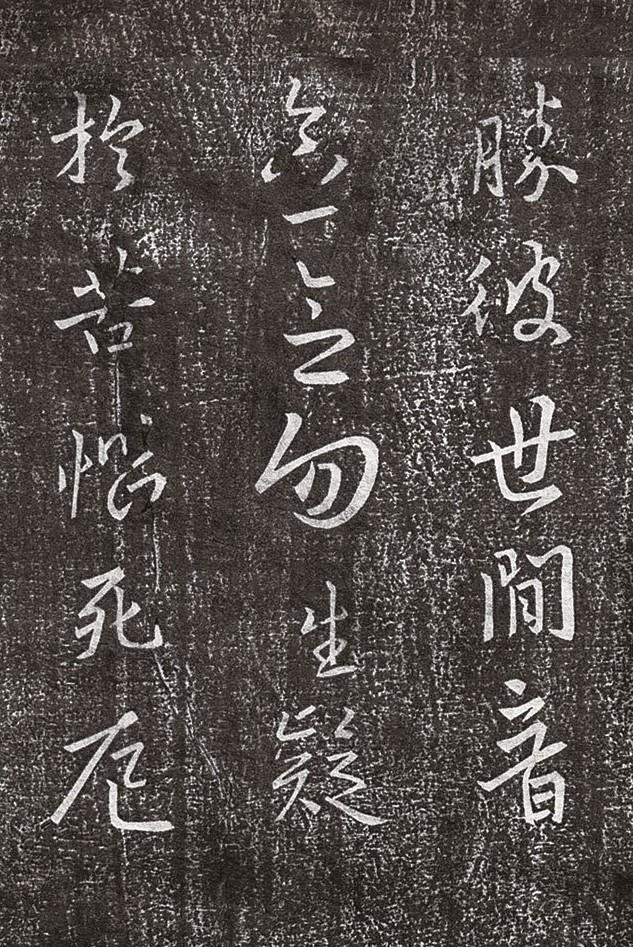 勝彼世間音
念念勿生疑
於苦惱死厄